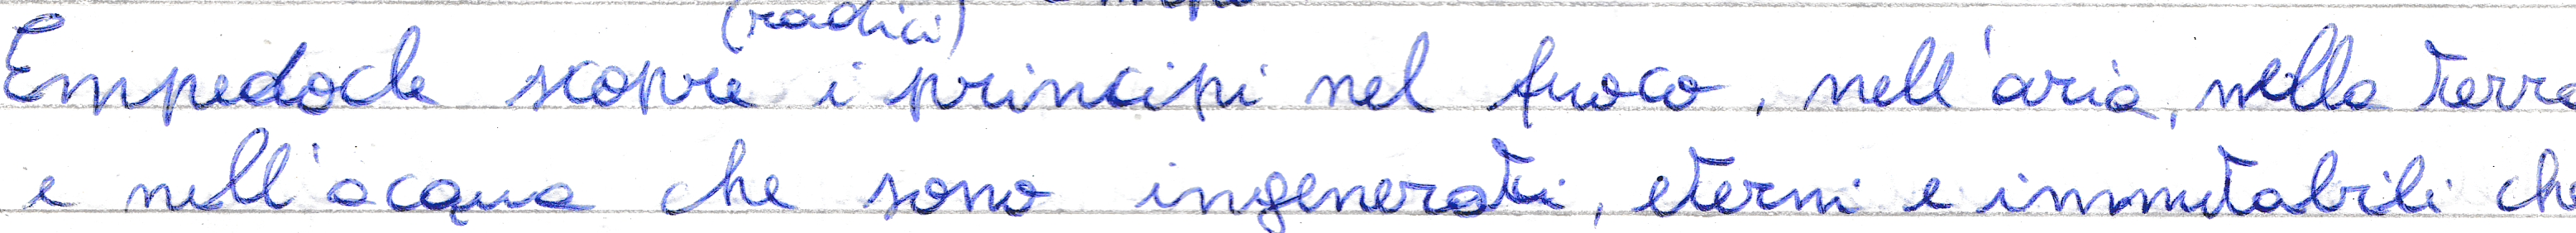 (radici)
Empedocle scopre i principi nel fuoco, nell'aria, nella terra
e nell'acqua che sono ingenerati, eterni e immutabili che